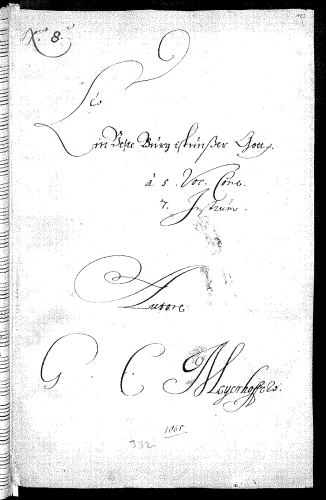 No 8.
Ein Veste Burg ist unser Gott.
à 5 Voc. Conc.
7. Instrum.
Autore
G. C. Meyerhoff
1065
332